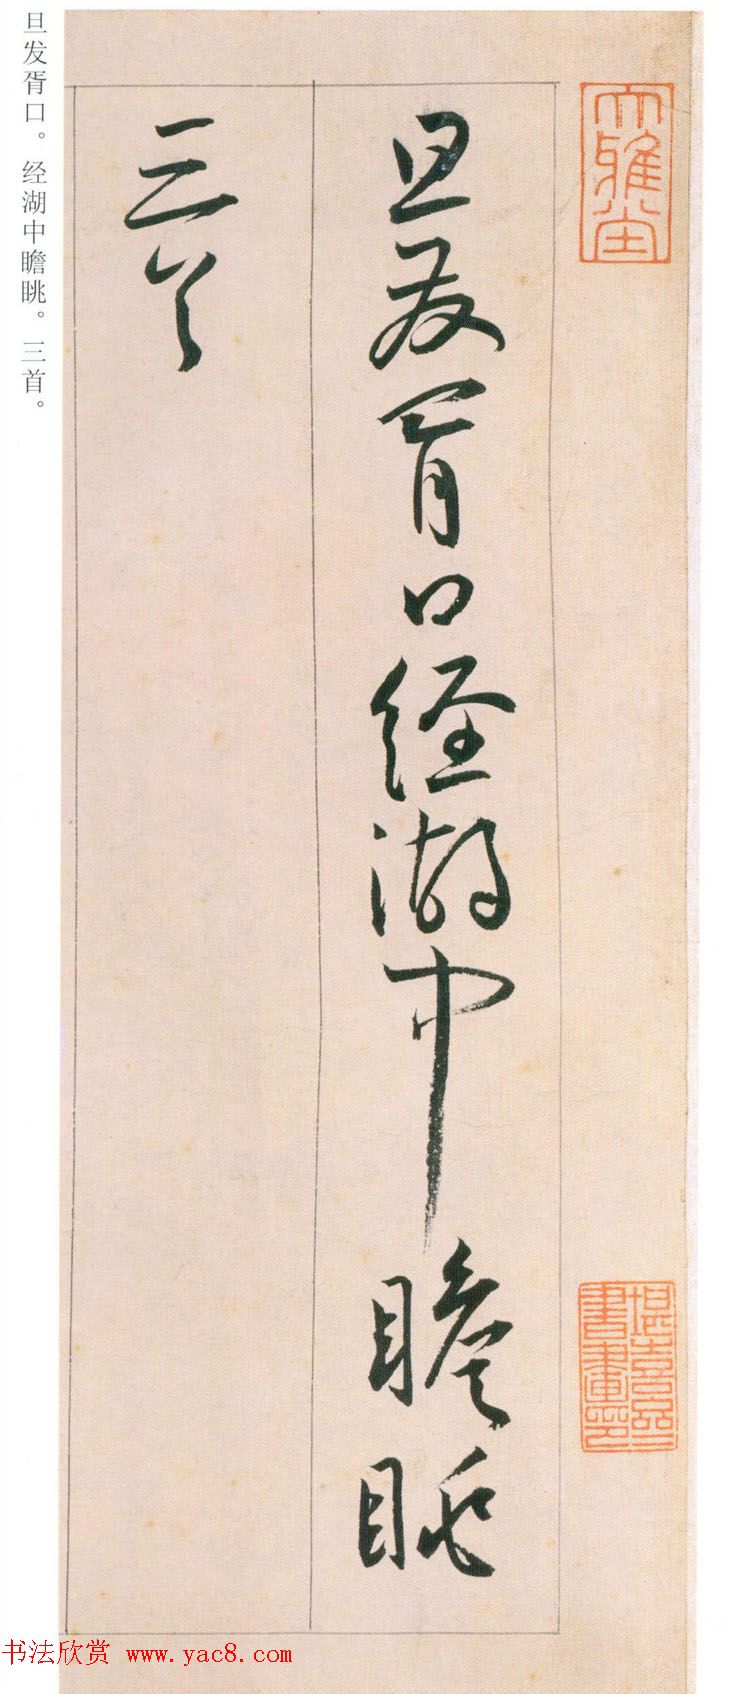 大雅堂
旦发胥口经湖中瞻眺
三首
旦发胥口。经湖中瞻眺。三首。
书法欣赏 www.yac8.com